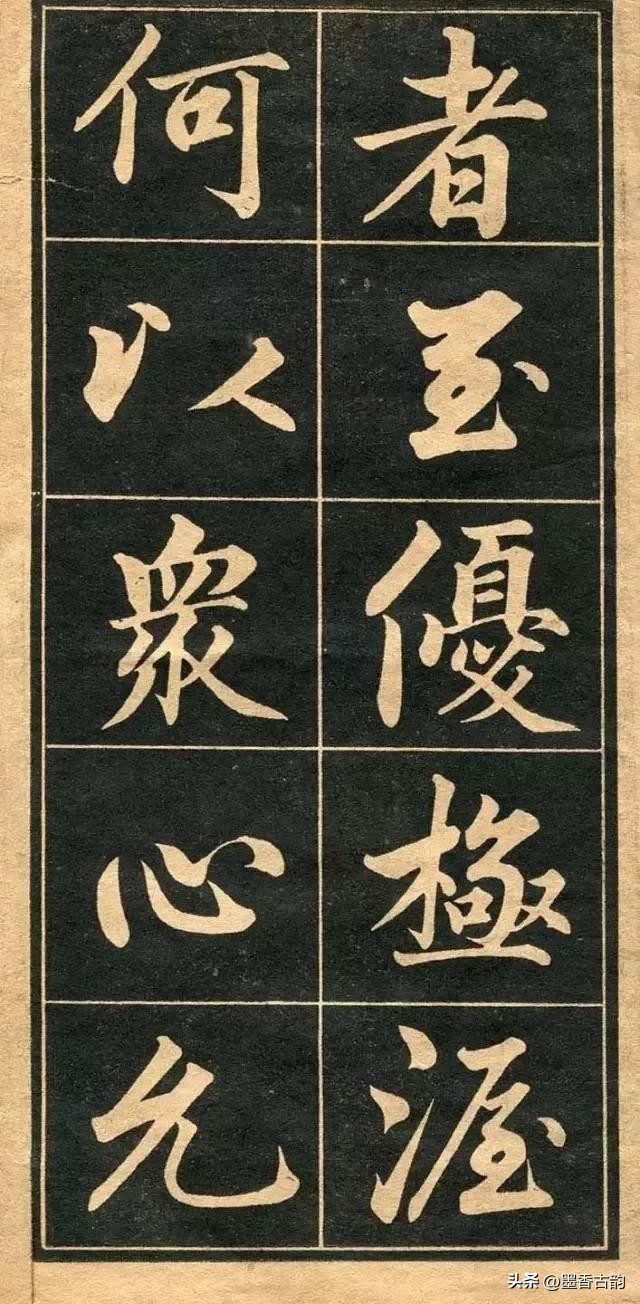 者至優極渥
何以衆心允
头条 @墨香古韵